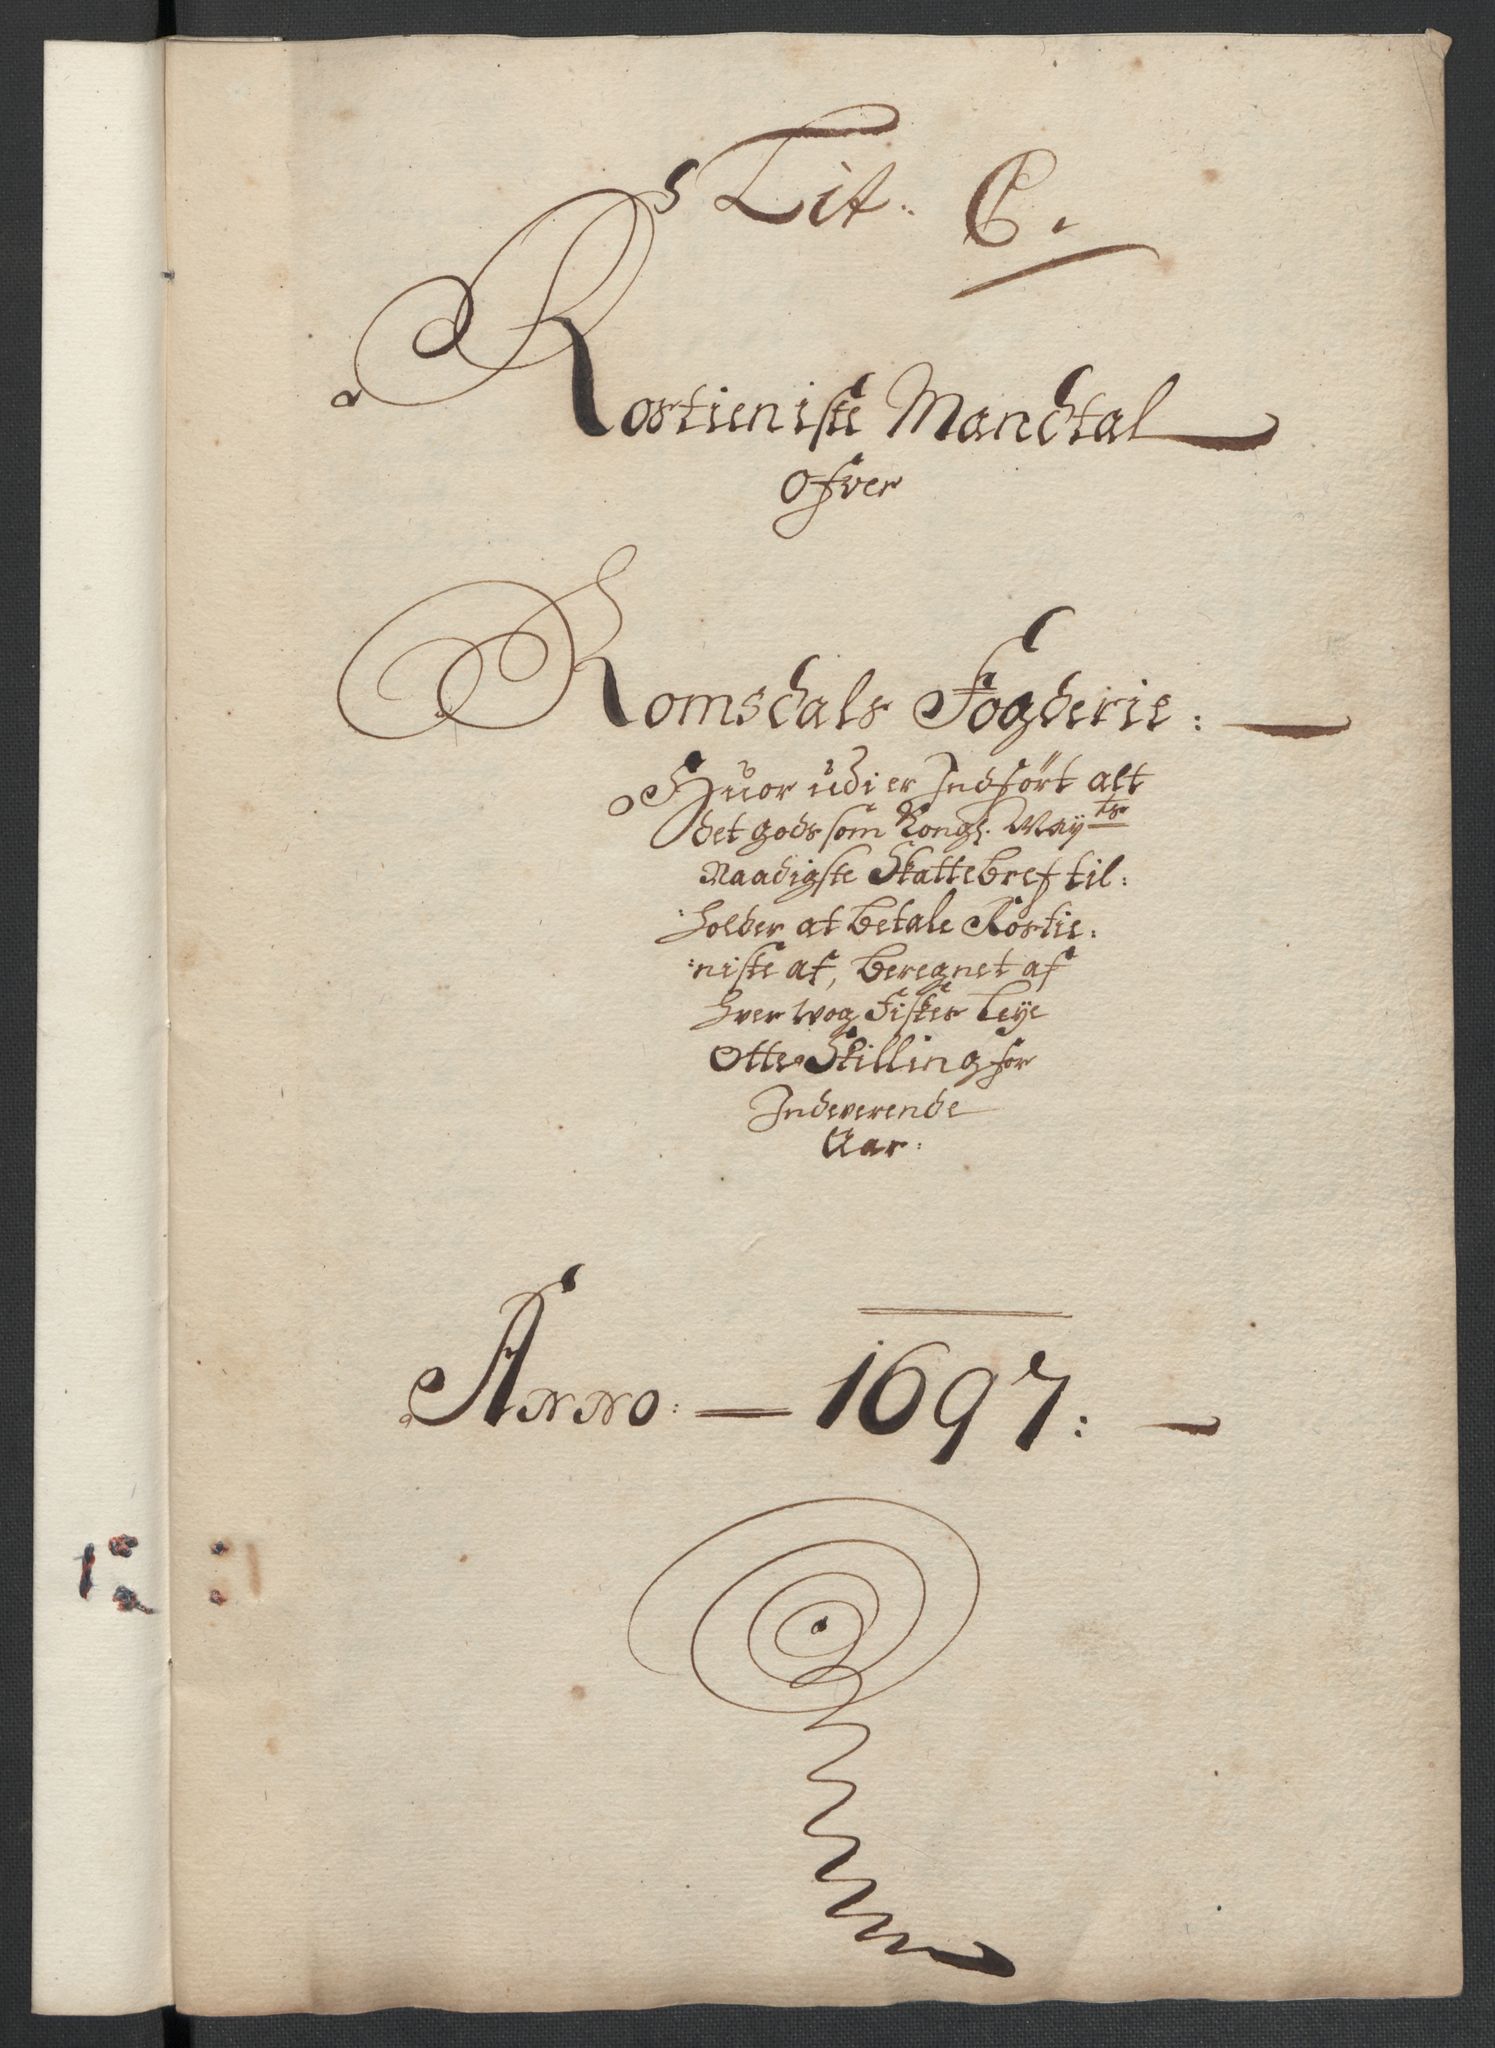 Lit: C.
Rostieniste Mandtal
ofver
Romsdals Fogderie:
Huor udi er Indført alt
det gods som Kongl. May^ts
Naadigste Skattebref til:
:holder at betale Rostie:
:niste af, beregnet af
hver wog Fiskes leye
Otte Skilling for
Indeverende
Aar:
Anno: 1697: